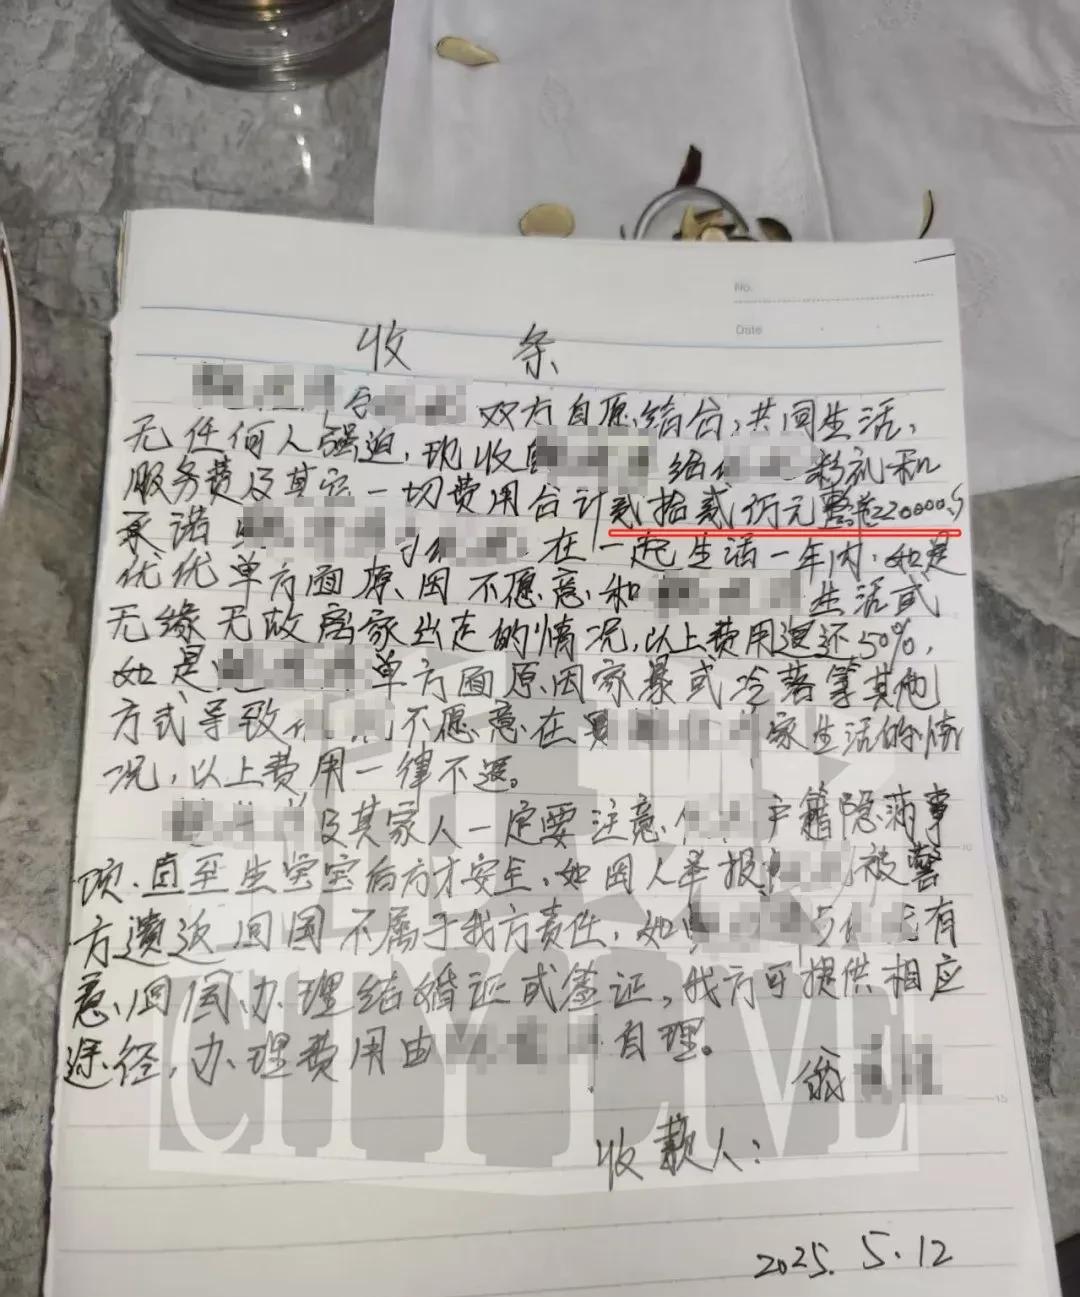 No.
Date
收 条
和 双方自愿结合,共同生活,
无任何人强迫,现收 给 彩礼和
服务费及其它一切费用合计贰拾贰万元整
承诺 在一起生活一年内.如是
优优单方面原因不愿意和 生活或
无缘无故离家出走的情况,以上费用退还50%,
如是 单方面原因家暴或冷落等其他
方式导致 不愿意在 家生活的情
况,以上费用一律不退。
及其家人一定要注意 户籍隐满事
项.直至生宝宝后方才安全,如因人举报 被警
方遣返回国不属于我方责任,如 有
意回国办理结婚证或签证,我方可提供相应
途径,办理费用由 自理。
翁
收款人:
2025.5.12
CITYLIVE